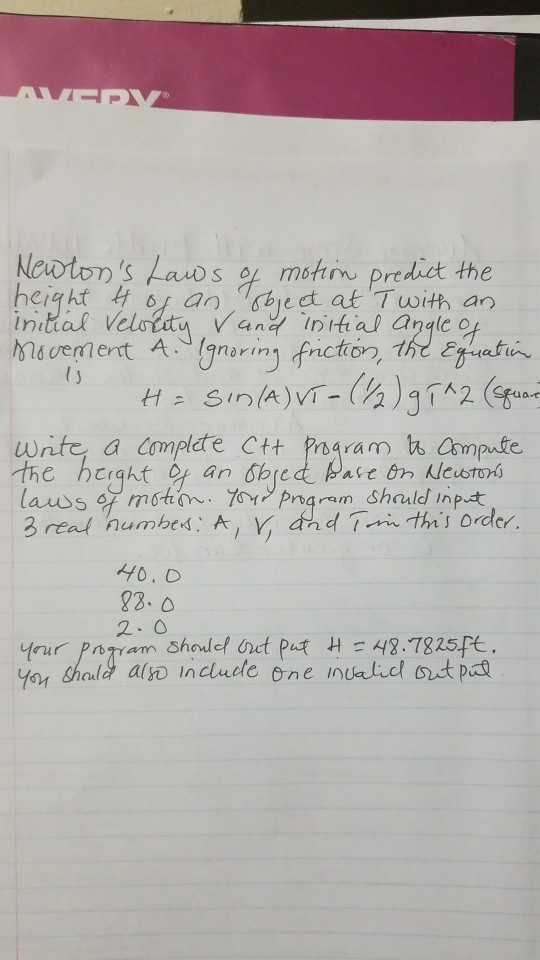 AVERY®
Newton's Laws of motion predict the
height H of an object at T with an
initial velocity V and initial angle of
Movement A. Ignoring friction, the Equation
is
H = Sin(A)VT - (1/2) gT^2 (square
Write a complete C++ program to compute
the height of an object base on Newton's
laws of motion. Your program should input
3 real numbers: A, V, and T in this order.
40.0
88.0
2.0
your program should out put H = 48.7825ft.
you should also include one invalid out put